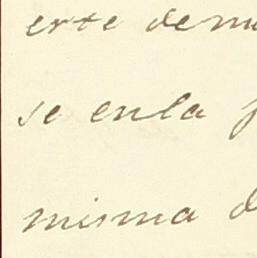 erte demu
se enla
misma d